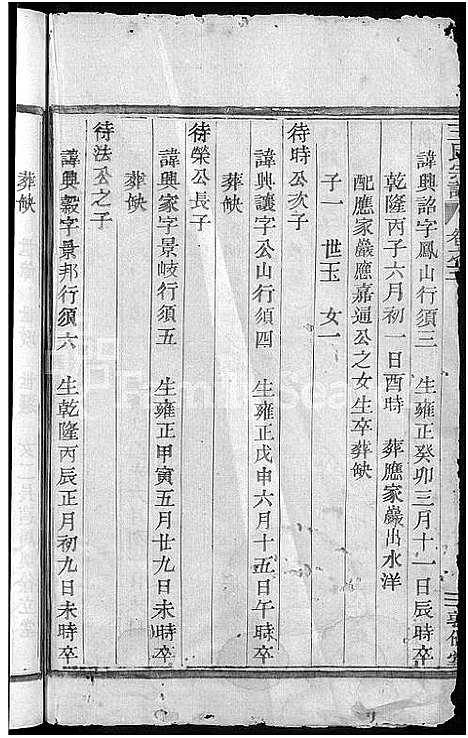 王氏宗譜
諱興詔字鳳山行須三　生雍正癸卯三月十一日辰時卒
乾隆丙子六月初一日酉時　葬應家巖出水洋
配應家巖應嘉通公之女生卒葬缺
子一　世玉　女一
待時公次子
諱興讓字公山行須四　生雍正戊申六月十五日午時卒
葬缺
待榮公長子
諱興家字景岐行須五　生雍正甲寅五月廿九日未時卒
葬缺
待法公之子
諱興穀字景邦行須六　生乾隆丙辰正月初九日未時卒
葬缺